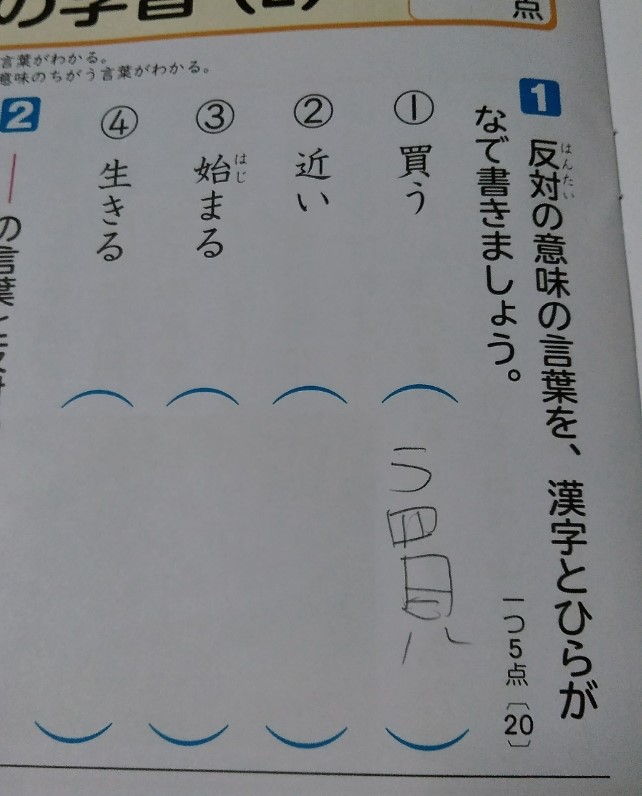 の学習(2)
点
言葉がわかる。
意味のちがう言葉がわかる。
1 反対の意味の言葉を、漢字とひらが
はんたい
なで書きましょう。
一つ5点〔20〕
① 買う
う買
② 近い
③ 始まる
はじ
④ 生きる
2
の言葉と